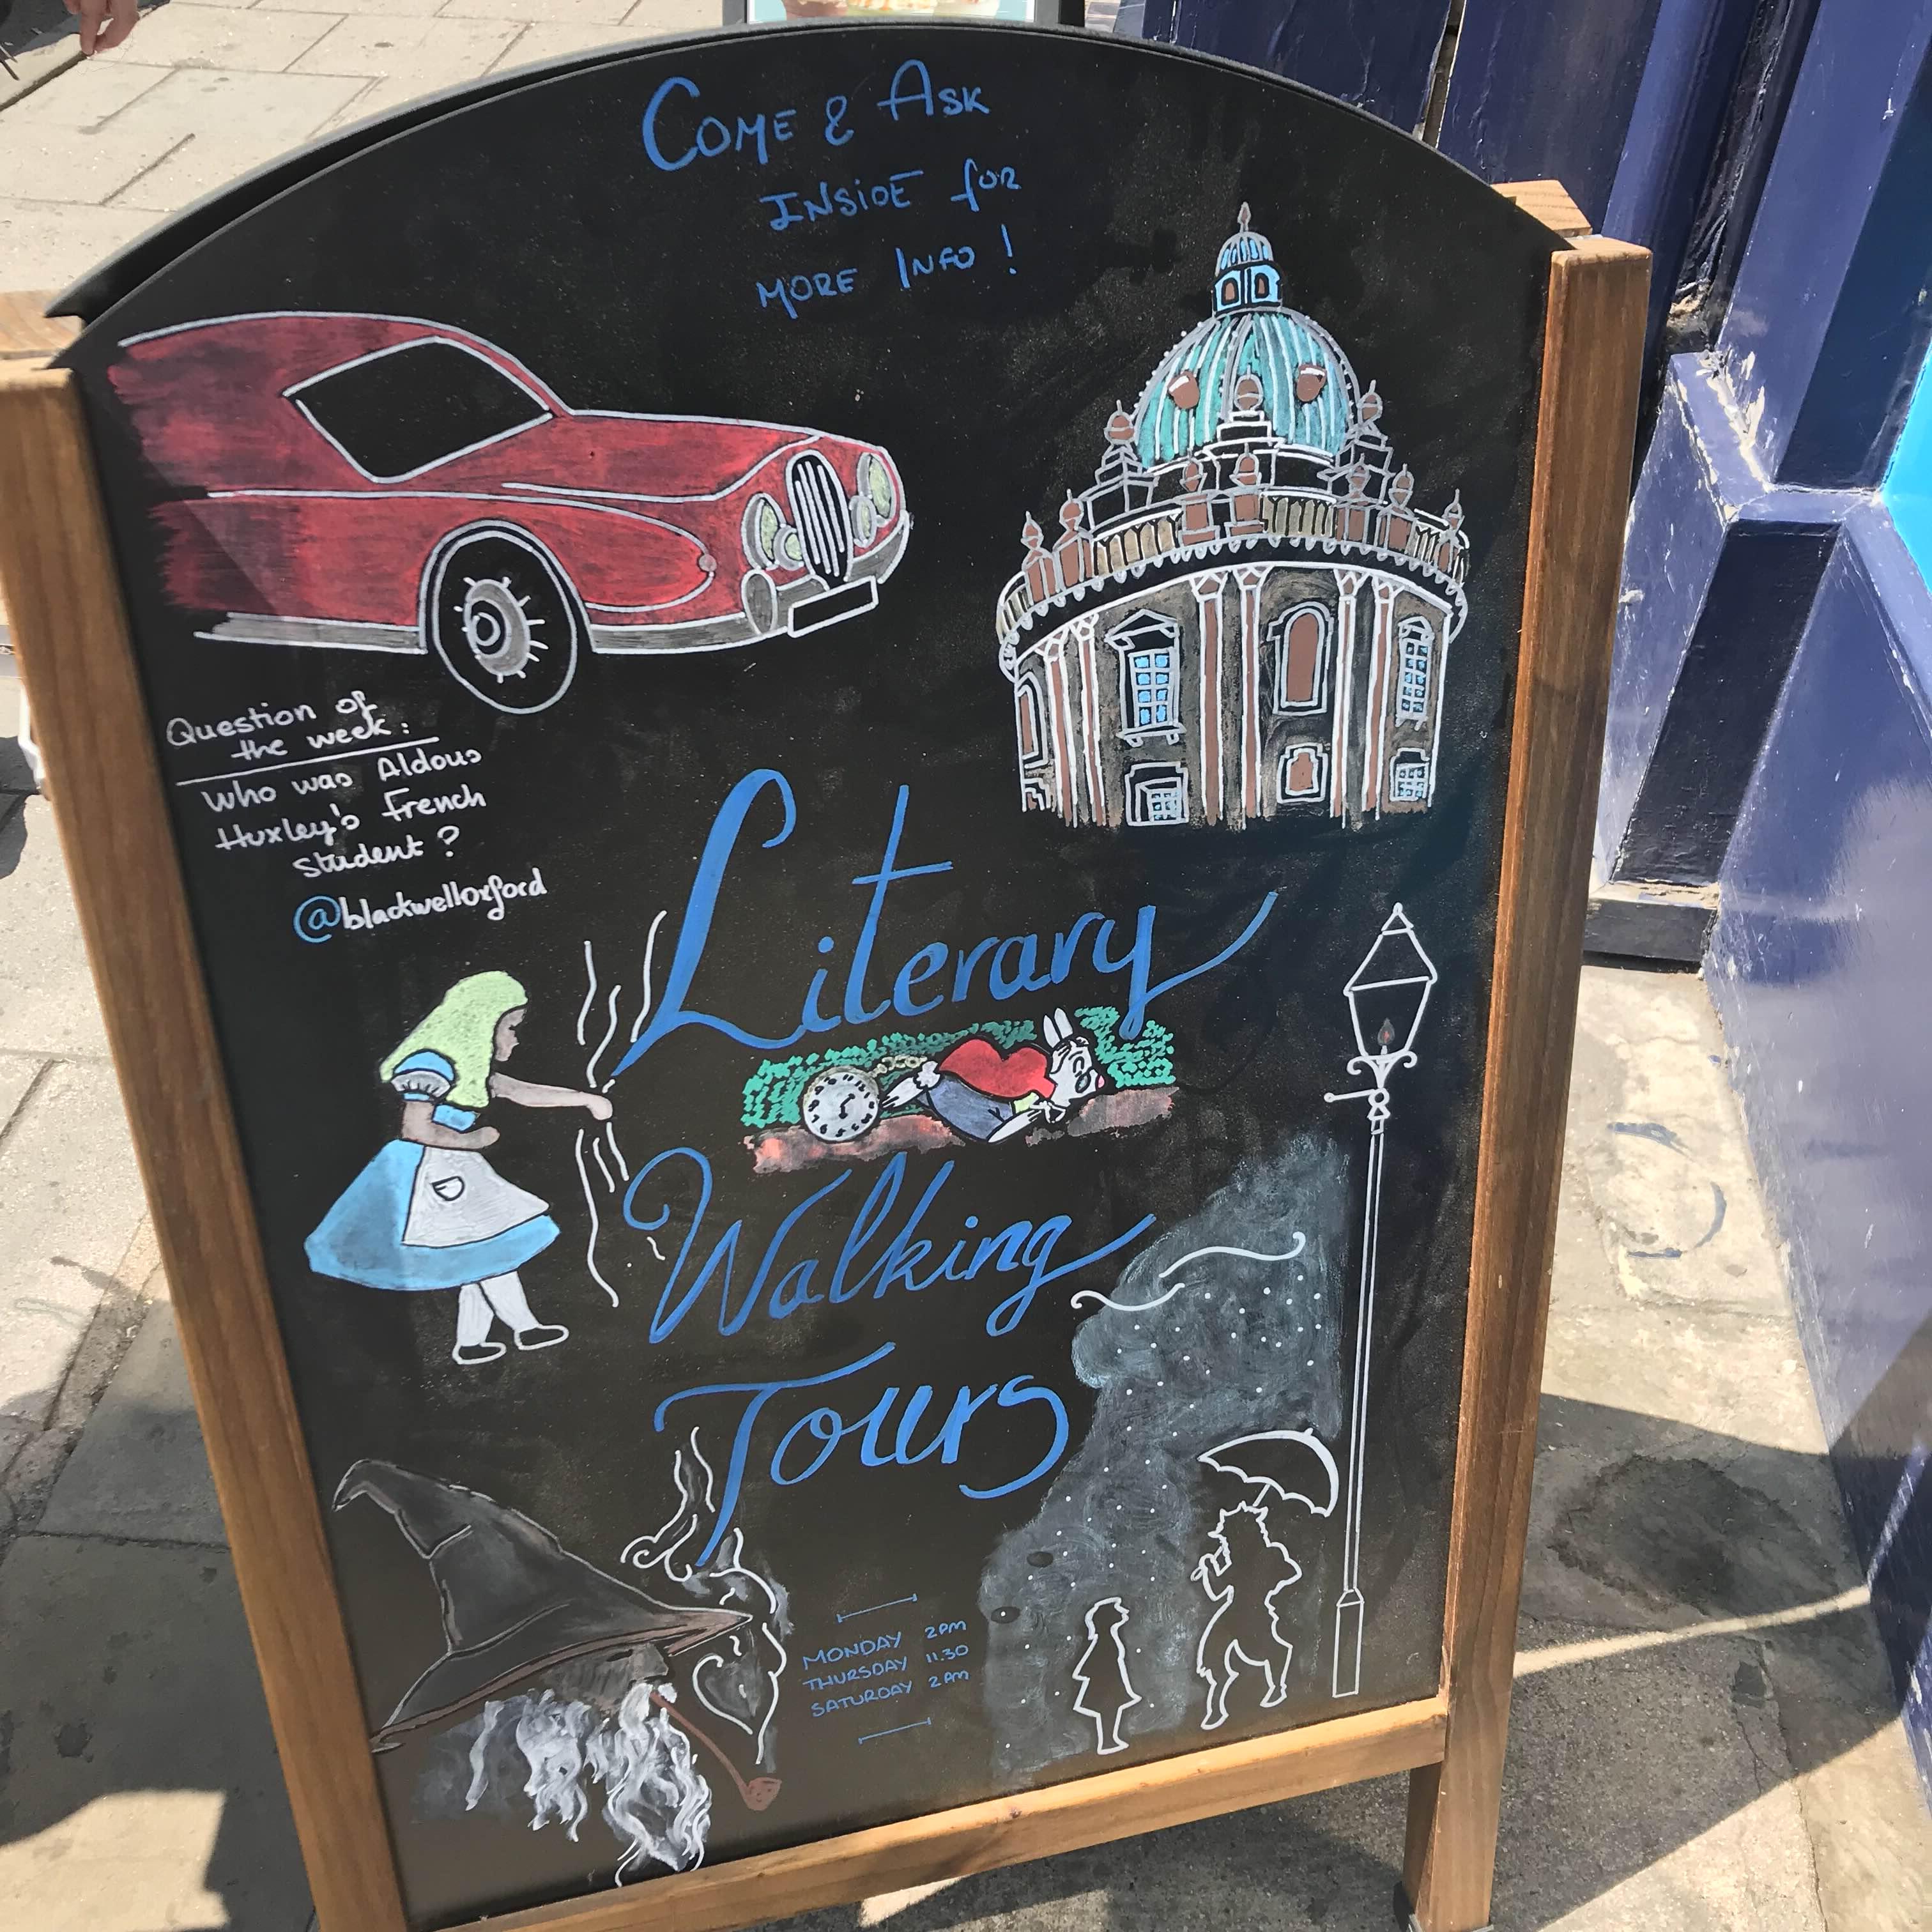 COME & ASK
INSIDE for
MORE INFO !
Question of
the week :
Who was Aldous
Huxley's French
Student ?
@blackwelloxford
Literary
Walking
Tours
MONDAY 2PM
THURSDAY 11.30
SATURDAY 2PM